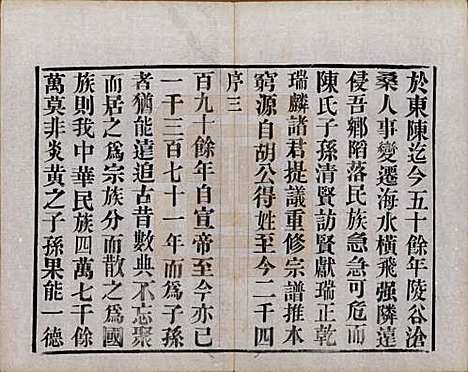 於東陳迄今五十餘年陵谷滄
桑人事變遷海水橫飛强隣遠
侵吾鄉陷落民族急急可危而
陳氏子孫清賢訪賢獻瑞正乾
瑞麟諸君提議重修宗譜推本
窮源自胡公得姓至今二千四
序三
百九十餘年自宣帝至今亦已
一千三百七十一年而爲子孫
者猶能遠追古昔數典不忘聚
而居之爲宗族分而散之爲國
族則我中華民族四萬七千餘
萬莫非炎黃之子孫果能一德